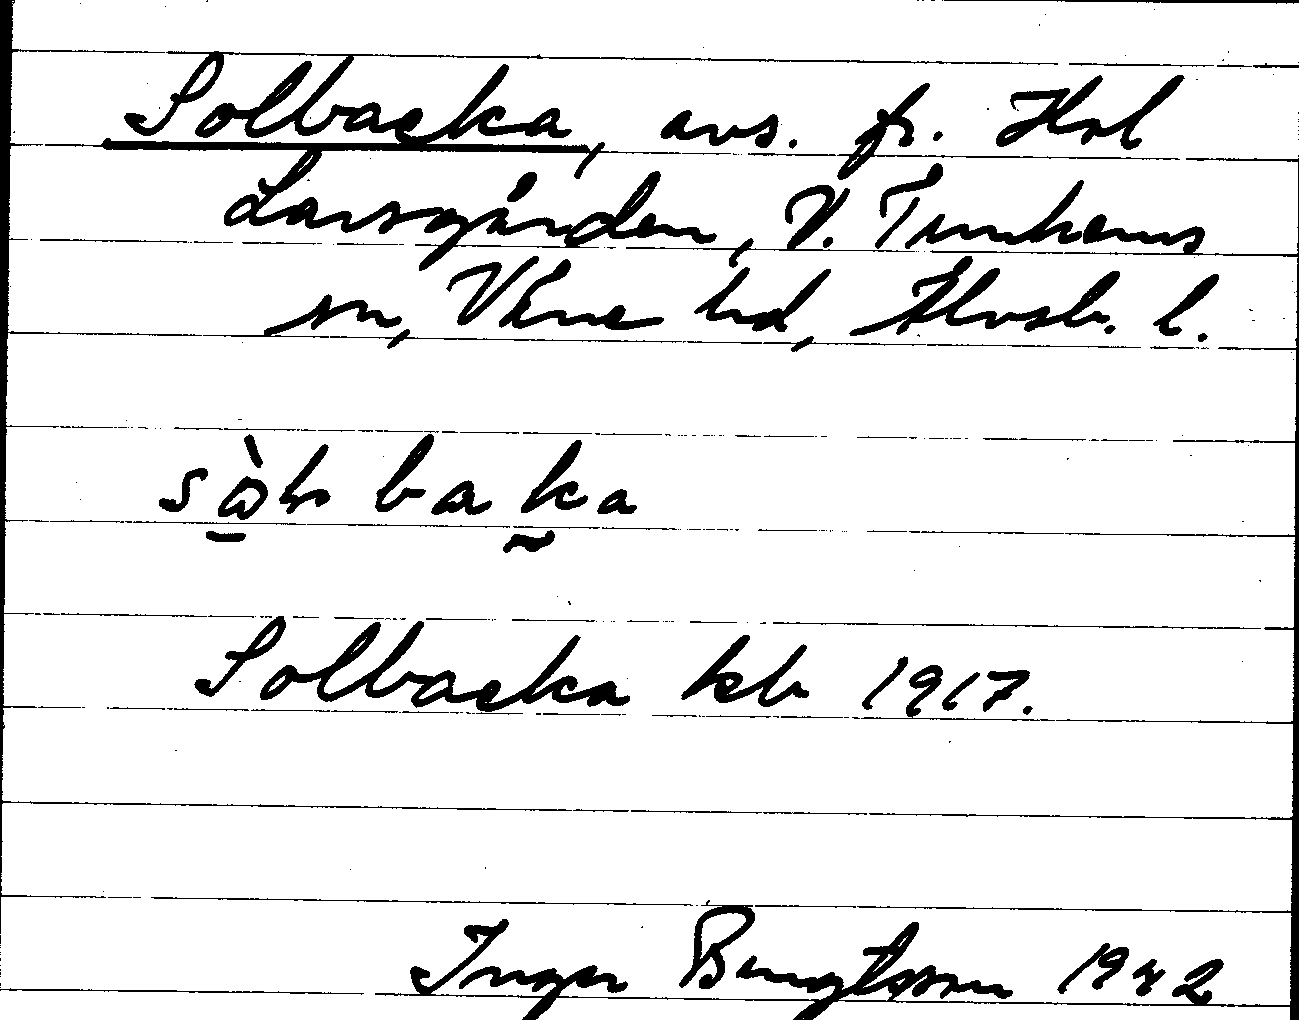 Solbacka, avs. fr. Hol
Larsgården, V. Tunhems
sn, Väne hd, Älvsb. l.
sò̱ḷ baka̰
Solbacka kb 1917.
Inger Bengtsson 1942